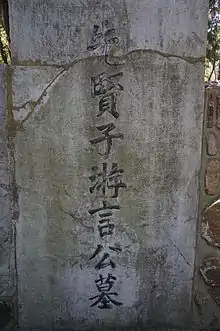 先賢子游言公墓